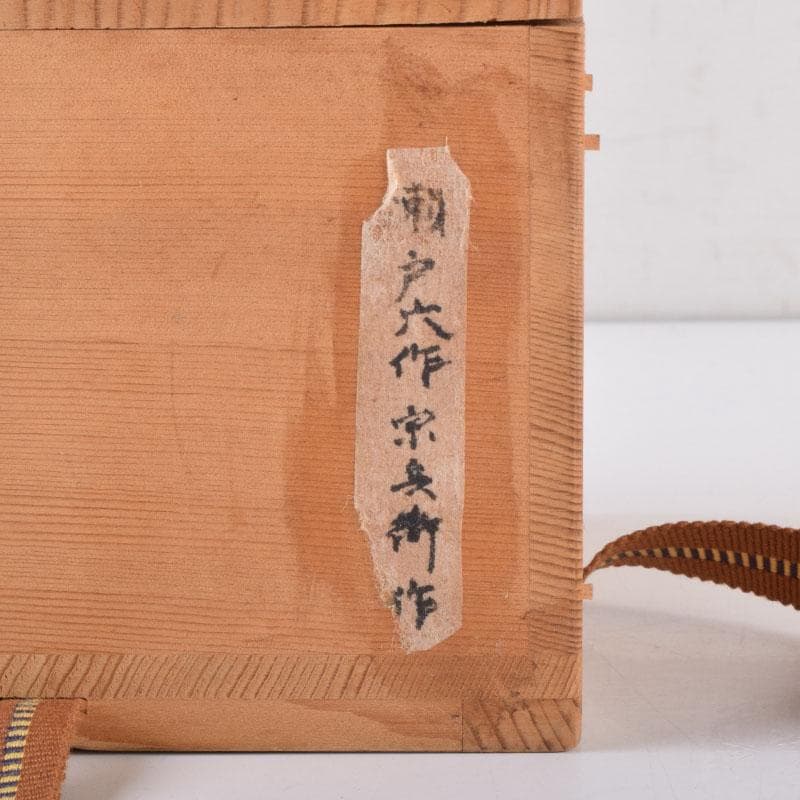 瀬戸六作宗兵衛作